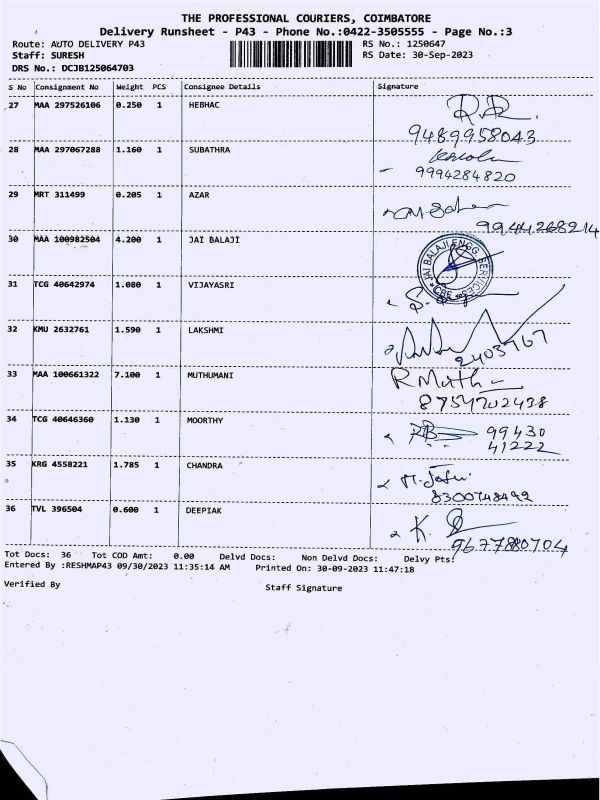 THE PROFESSIONAL COURIERS, COIMBATORE
Delivery Runsheet - P43 - Phone No.:0422-3505555 - Page No.:3
Route: AUTO DELIVERY P43 RS No.: 1250647
Staff: SURESH RS Date: 30-Sep-2023
DRS No.: DCJB125064703
S No Consignment No Weight PCS Consignee Details Signature
27 MAA 297526106 0.250 1 HEBHAC
9489958043
28 MAA 297067288 1.160 1 SUBATHRA
9994284820
29 MRT 311499 0.205 1 AZAR
9944268214
30 MAA 100982504 4.200 1 JAI BALAJI
JAI BALAJI ENGG SERVICES
CBE
31 TCG 40642974 1.080 1 VIJAYASRI
32 KMU 2632761 1.590 1 LAKSHMI
33 MAA 100661322 7.100 1 MUTHUMANI R Muth
8754202438
34 TCG 40646360 1.130 1 MOORTHY 99430
41222
35 KRG 4558221 1.785 1 CHANDRA
8300748492
36 TVL 396504 0.600 1 DEEPIAK K.
9677880704
Tot Docs: 36 Tot COD Amt: 0.00 Delvd Docs: Non Delvd Docs: Delvy Pts:
Entered By :RESHMAP43 09/30/2023 11:35:14 AM Printed On: 30-09-2023 11:47:18
Verified By Staff Signature